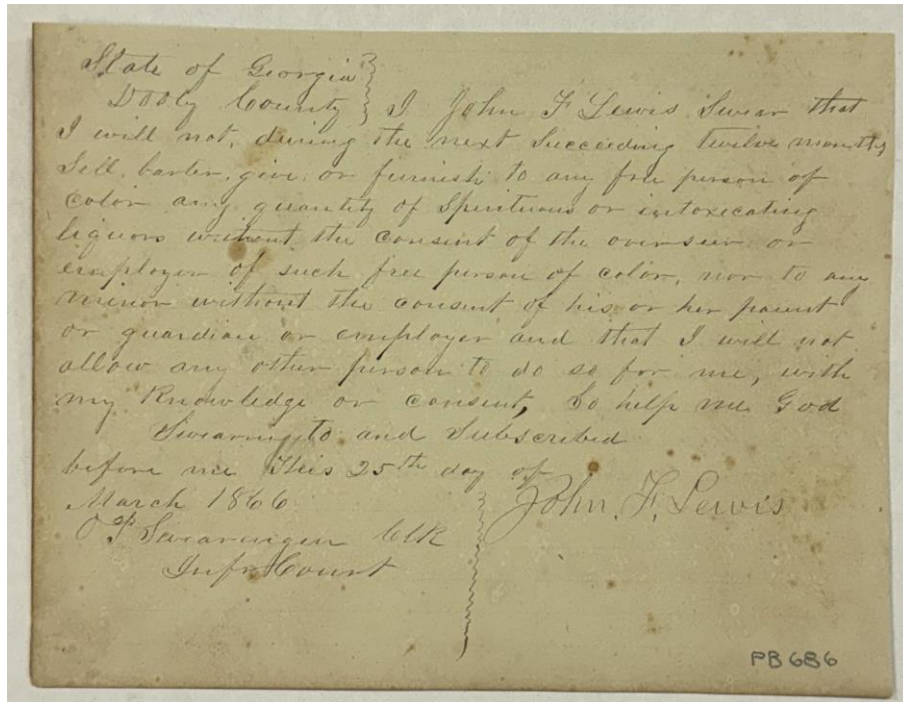 State of Georgia
Dooly County I John F Lewis Swear that
I will not, during the next Succeeding twelve months
Sell, barter, give, or furnish to any free person of
color any quantity of Spirituous or intoxicating
liquors without the consent of the overseer or
employer of such free person of color, nor to any
minor without the consent of his or her parent
or guardian or employer and that I will not
allow any other person to do so for me, with
my Knowledge or consent, So help me God
Swearing to and Subscribed
before me this 25th day of
March 1866
John. F. Lewis
O P Swearingen Clk
Infr Court
PB 686